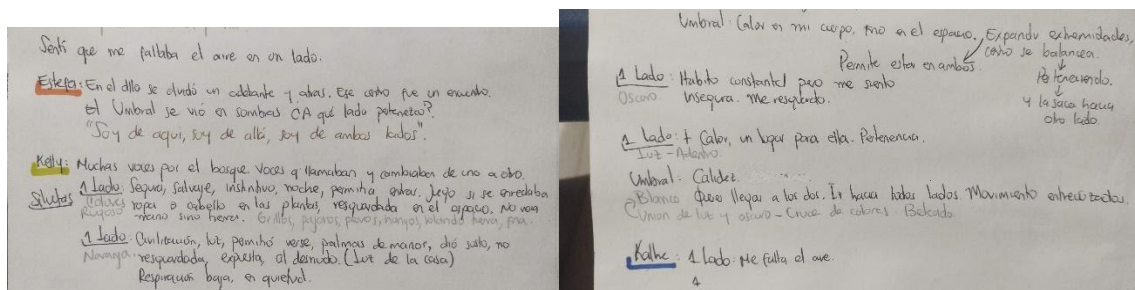 Sentí que me faltaba el aire en un lado.
Estefa: En el dllo se olvidó un adelante y atrás. Ese centro fue un encuentro.
El Umbral se vió en sombras ¿A qué lado pertenezco?
"Soy de aquí, soy de allá, soy de ambos lados".
Kelly: Muchas voces por el bosque. Voces q llamaban y cambiaban de uno a otro.
Siluetas 1 Lado: Segura, salvaje, instintivo, noche, permitía entrar. Juego si se enredaba
Colores ropa o cabello en las plantas, resguardada en el espacio. No veía
Rugoso mano sino hierva. Grillos, pájaros, pavos, hongos, hierva, fría.
1 Lado: Civilización, luz, permitió verse, palmas de manos, dió susto, no
Naranja resguardada, expuesta, al desnudo. (Luz de la casa)
Respiración baja, en quietud.
Umbral: Calor en mi cuerpo, no en el espacio. Expandir extremidades,
como se balancea.
Permite estar en ambos.
Perteneciendo.
y la saca hacia
otro lado.
1 Lado: Habito constante pero me siento
Oscuro. Insegura. Me resguardo.
1 Lado: + Calor, un lugar para ella. Pertenencia.
Luz - Adentro
Umbral: Calidez.
Blanco Quiere llegar a los dos. Ir hacia todos lados. Movimiento entrecruzados.
Unión de luz y oscuro - Cruce de colores.
Kathe: 1 Lado: Me falta el aire.
1